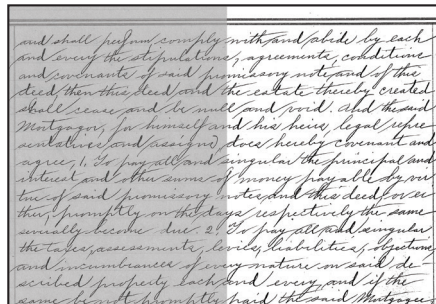 and shall perform comply with and abide by each
and every the stipulations, agreements, conditions
and covenants of said promissory note and of this
deed, then this deed and the estate thereby created
shall cease and be null and void. And the said
Mortgagor, for himself and his heirs, legal repre
sentatives and assigns, does hereby covenant and
agree, 1. To pay all and singular the principal and
interest and other sums of money payable by vir
tue of said promissory note, and this deed, or ei
ther, promptly on the days respectively the same
severally become due. 2. To pay all and singular
the taxes, assessments, levies, liabilities, obligations
and incumbrances of every nature on said de
scribed property each and every, and if the
same be not promptly paid the said Mortgagee